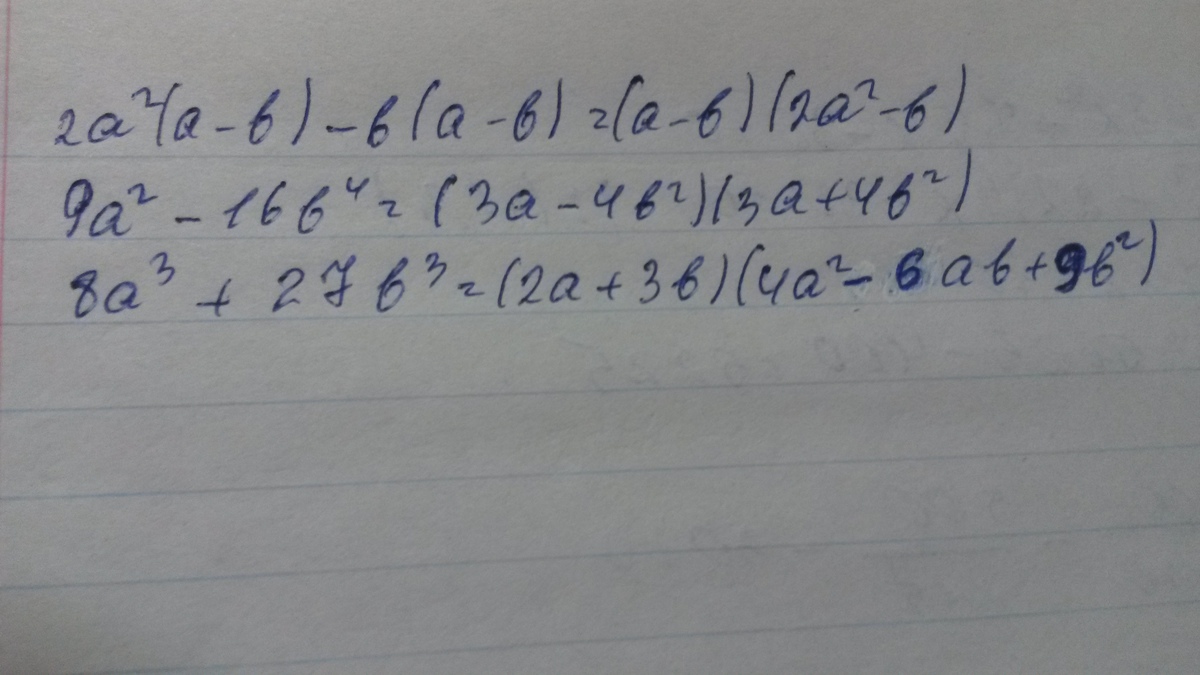 2a²(a-b)-b(a-b)=(a-b)(2a²-b)
9a²-16b⁴=(3a-4b²)(3a+4b²)
8a³+27b³=(2a+3b)(4a²-6ab+9b²)